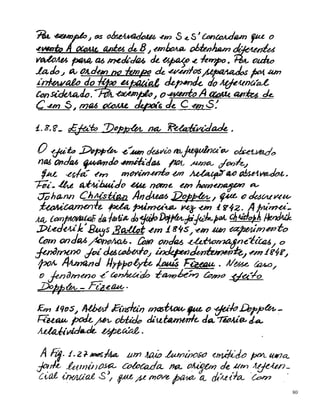 Por exemplo, os observadores em S e S' concordam que o
evento A ocorre antes de B, embora obtenham diferentes
valores para as medidas de espaço e tempo. Por outro
lado, a ordem no tempo de eventos separados por um
intervalo do tipo espacial depende do referencial
considerado. Por exemplo, o evento A ocorre antes de
C em S, mas ocorre depois de C em S'.
1.8.8_ Efeito Doppler na Relatividade.
O efeito Doppler é um desvio na frequência observado
nas ondas quando emitidas por uma fonte,
que está em movimento em relação ao observador.
Foi-lhe atribuído esse nome em homenagem a
Johann Christian Andreas Doppler, que o descreveu
teoricamente pela primeira vez em 1842. A primei-
ra comprovação da teoria do efeito Doppler foi feita por Christoph Hendrik
Diederik Buys Ballot em 1845, em um experimento
com ondas sonoras. Com ondas eletromagnéticas, o
fenômeno foi descoberto, independentemente, em 1848,
por Armand Hyppolyte Louis Fizeau. Nesse caso,
o fenômeno é conhecido também como efeito
Doppler - Fizeau.
Em 1905, Albert Einstein mostrou que o efeito Doppler-
Fizeau pode ser obtido diretamente da Teoria da
Relatividade especial.
A Fig. 1.27 mostra um raio luminoso emitido por uma
fonte luminosa colocada na origem de um referen-
cial inercial S', que se move para a direita com
80